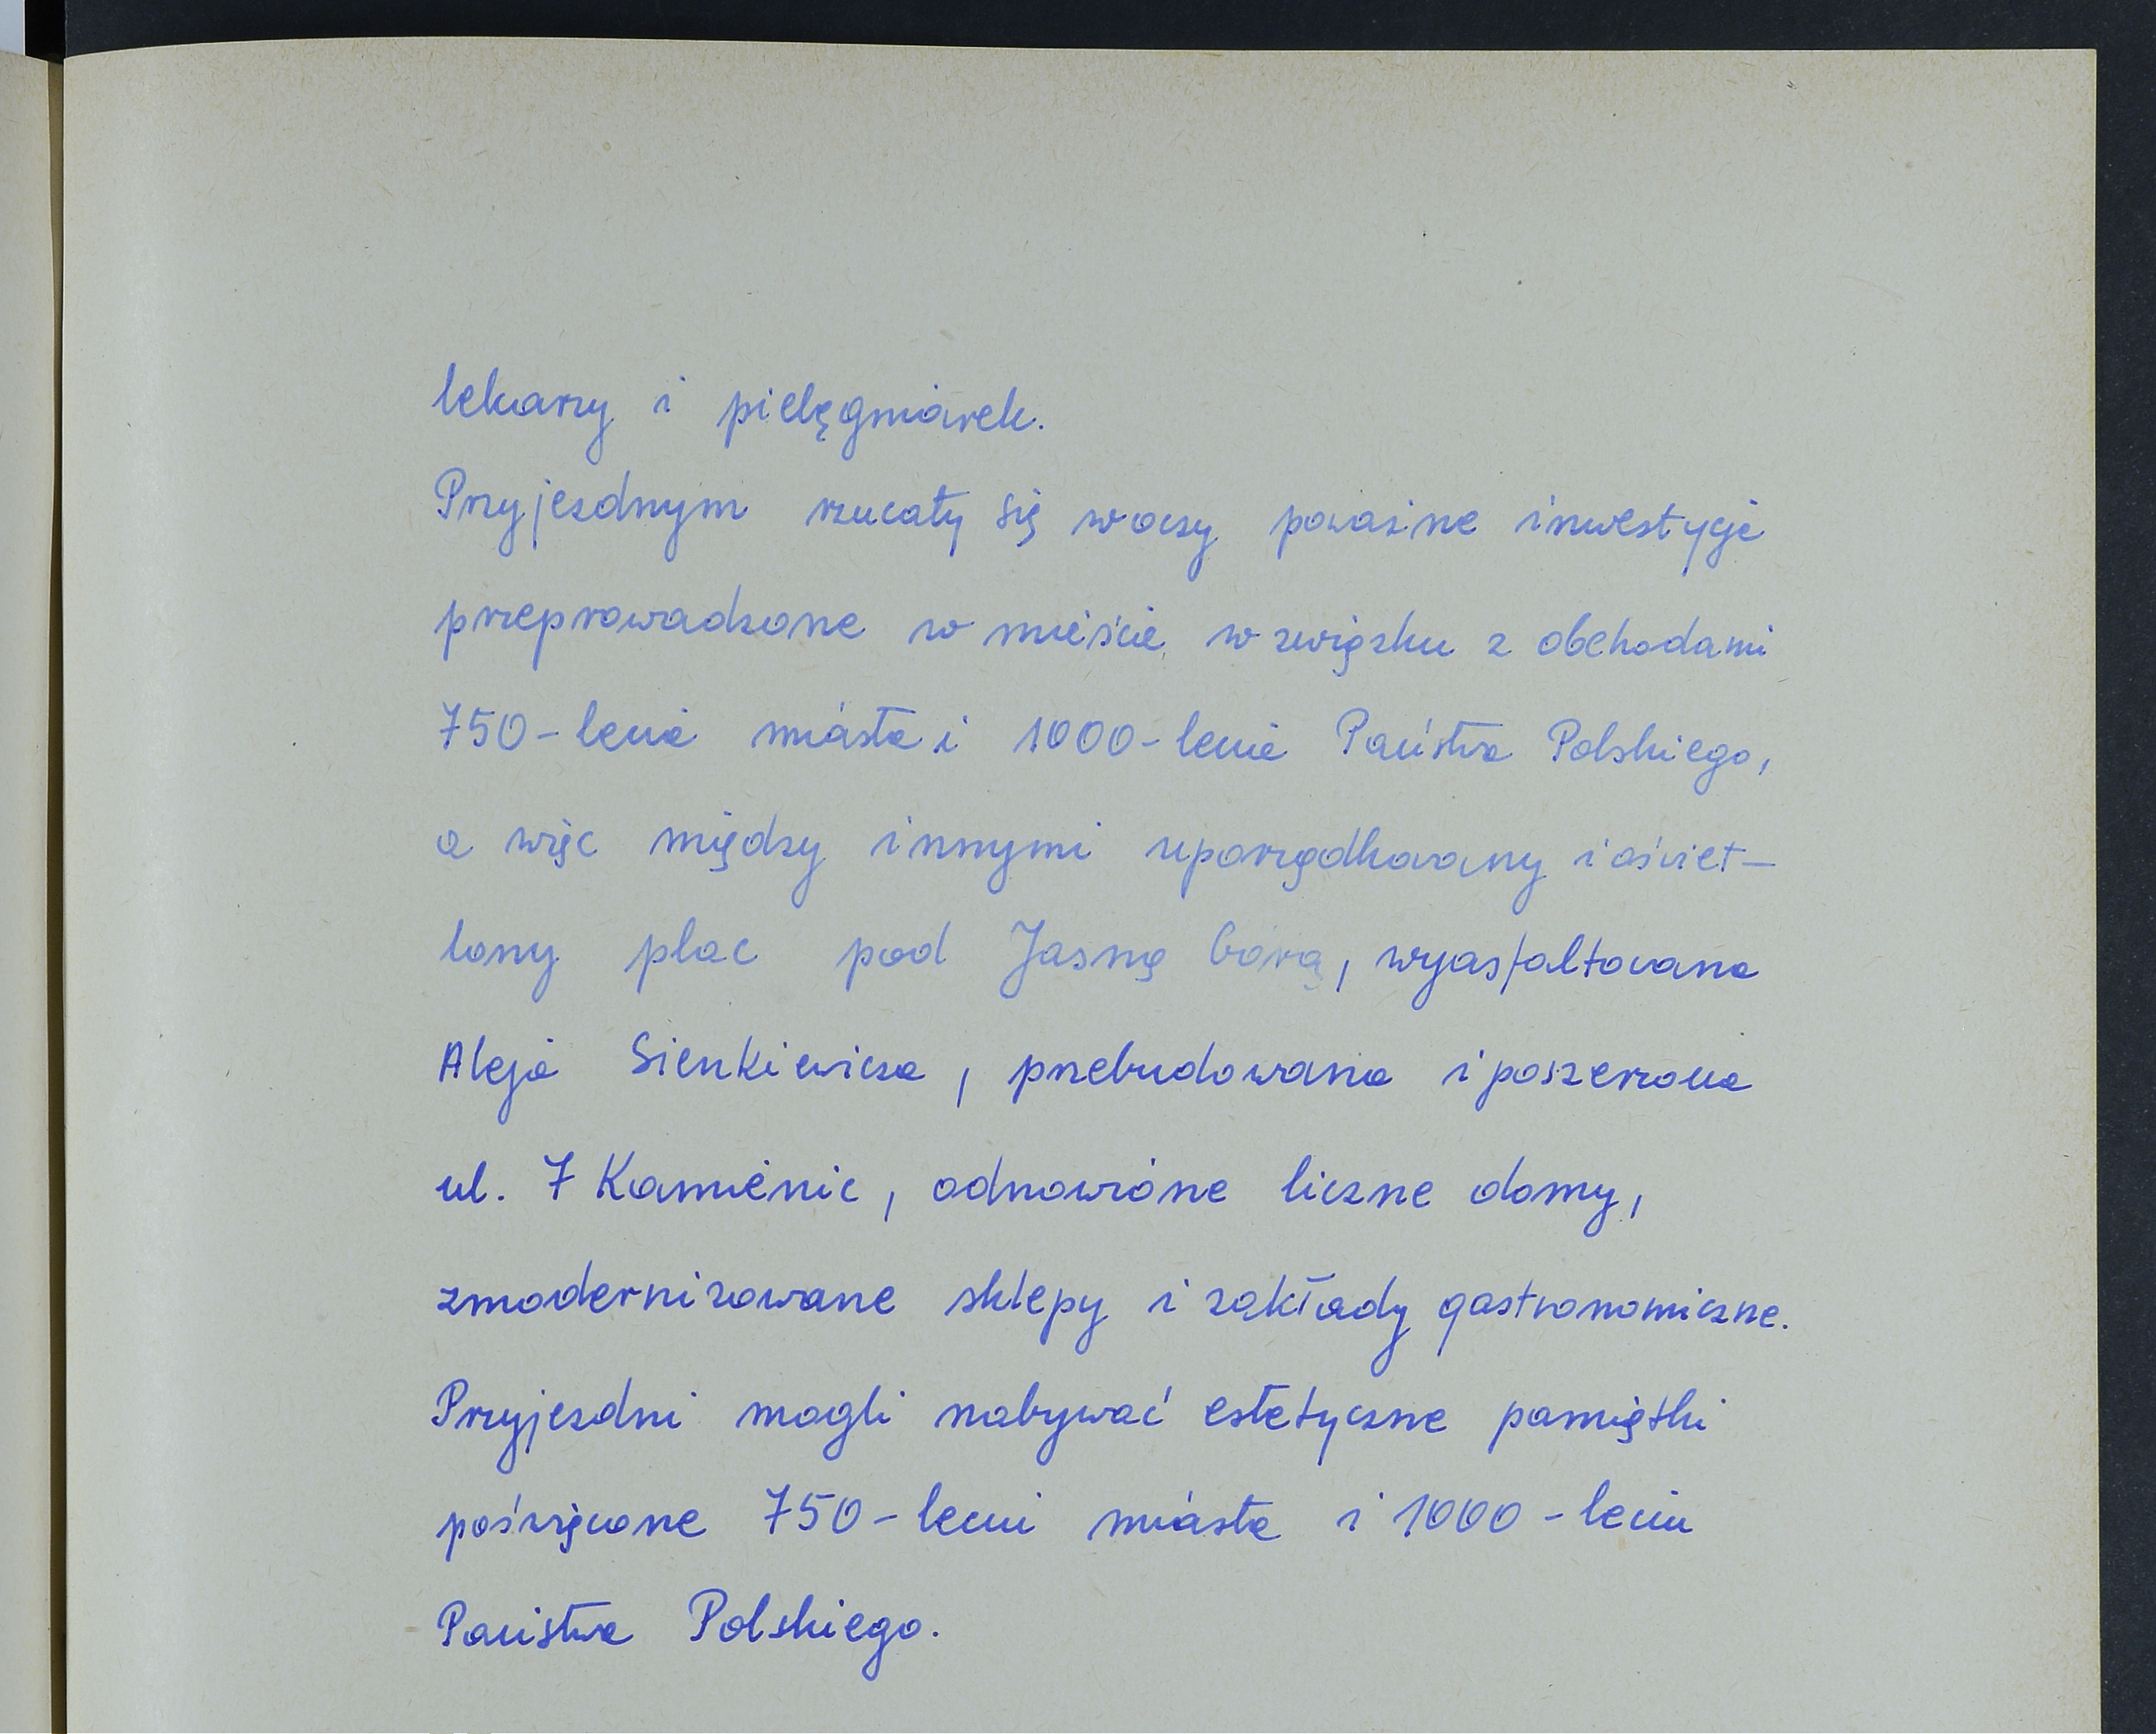 lekarzy i pielęgniarek.
Przyjezdnym rzucały się w oczy poważne inwestycje
przeprowadzone w mieście w związku z obchodami
750-lecia miasta i 1000-lecia Państwa Polskiego,
a więc między innymi uporządkowany i oświet-
lony plac pod Jasną Górą, wyasfaltowana
Aleja Sienkiewicza, przebudowana i poszerzona
ul. 7 Kamienic, odnowione liczne domy,
zmodernizowane sklepy i zakłady gastronomiczne.
Przyjezdni mogli nabywać estetyczne pamiątki
poświęcone 750-leciu miasta i 1000-leciu
Państwa Polskiego.